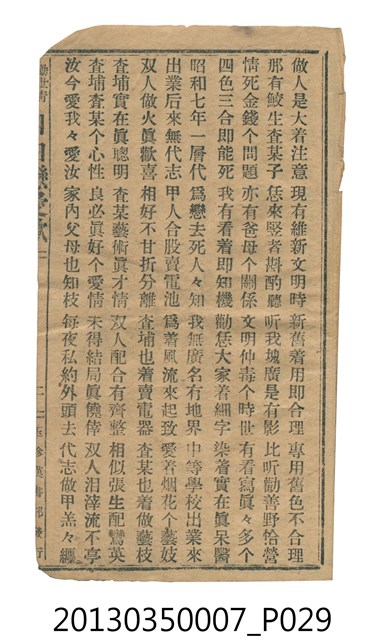 做人是大着注意 現有維新文明時 新舊着用即合理 專用舊色不合理
那有鮫生査某子 恁來竪者斟酌聽 听我塊廣是有影 比听勸善野恰營
情死金錢个問題 亦有爸母个關係 文明仲毒个時世 有看寫眞々多个
四色三合即能死 我有看着即知機 勸恁大家着細字 染着實在眞呆醫
昭和七年一層代 爲戀去死人々知 我無廣名有地界 中等學校出業來
出業后來無代志 甲人合股賣電池 爲着風流來起致 愛着烟花个藝妓
双人做火眞歡喜 相好不甘折分離 査埔也着賣電器 査某也着做藝枝
査埔實在眞聰明 査某藝術眞才情 双人配合有齊整 相似張生配鶯英
査埔査某个心性 良必眞好个愛情 未得結局眞僥倖 双人泪滓流不亭
汝今愛我々愛汝 家內父母也知枝 每夜私約外頭去 代志做甲羔々纏
20130350007_P029